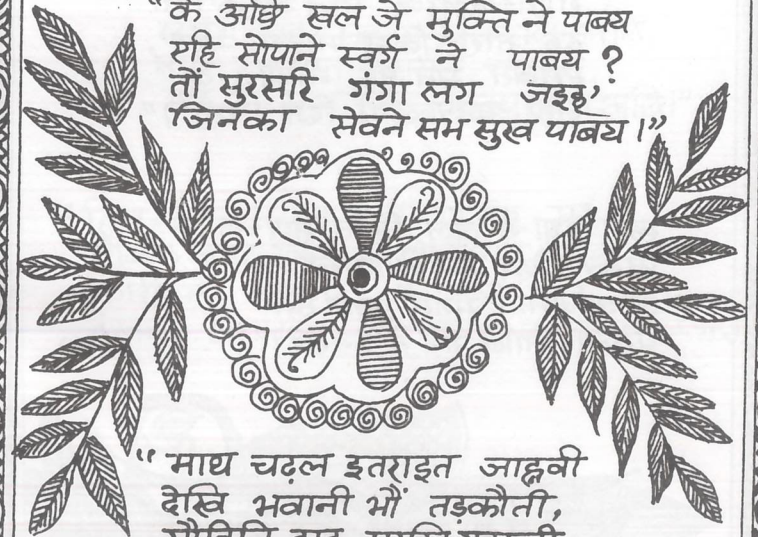 "के अछि खल जे मुक्ति ने पाबय
एहि सोपाने स्वर्ग ने पाबय ?
तौं सुरसरि गंगा लग जइह'
जिनका सेवने सभ सुख पाबय ।"
"माथ चढ़ल इतराइत जाह्नवी
देखि भवानी भौं तड़कौती,